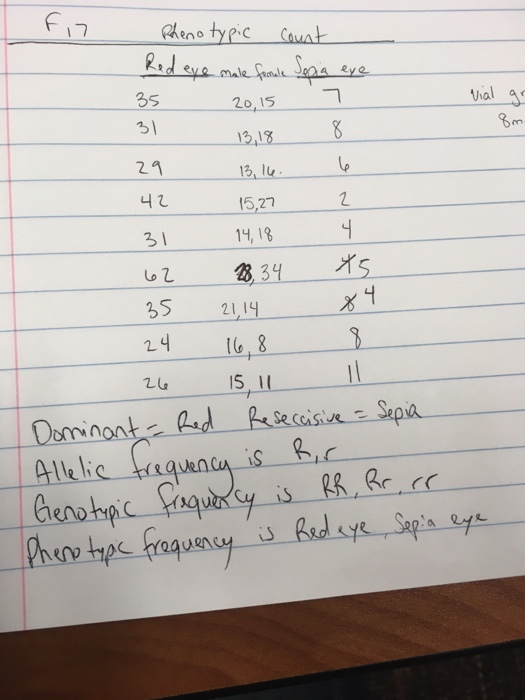 F17 Phenotypic Count
Red eye male female Sepia eye
35 20,15 7 Vial
31 13,18 8 8m
29 13,16. 6
42 15,27 2
31 14,18 4
62 28, 34 5
35 21,14 4
24 16, 8 8
26 15, 11 11
Dominant = Red Reseccisive = Sepia
Allelic frequency is R,r
Genotypic frequency is RR, Rr, rr
Phenotypic frequency is Red eye, Sepia eye